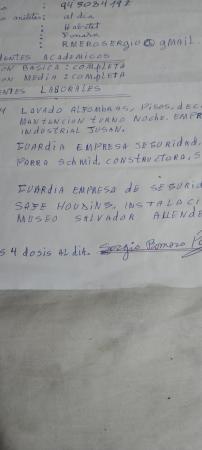 : 995084198
militar: al dia
: Habitat
: Fonasa
: RMEROSERGIO@gmail.
DENTES ACADEMICOS
ON BASICA: COMPLETA
ON MEDIA: COMPLETA
ENTES LABORALES
LAVADO ALFOMBRAS, PISOS, DEC
MANTENCION TURNO NOCHE. EMPR
INDUSTRIAL JUSAN.
GUARDIA EMPRESA SEGURIDAD,
PARRA SCHMID, CONSTRUCTORA, S
GUARDIA EMPRESA DE SEGURID
SAFE HOUSING, INSTALACI
MUSEO SALVADOR ALLENDE
S 4 dosis AL dia. Sergio Romero